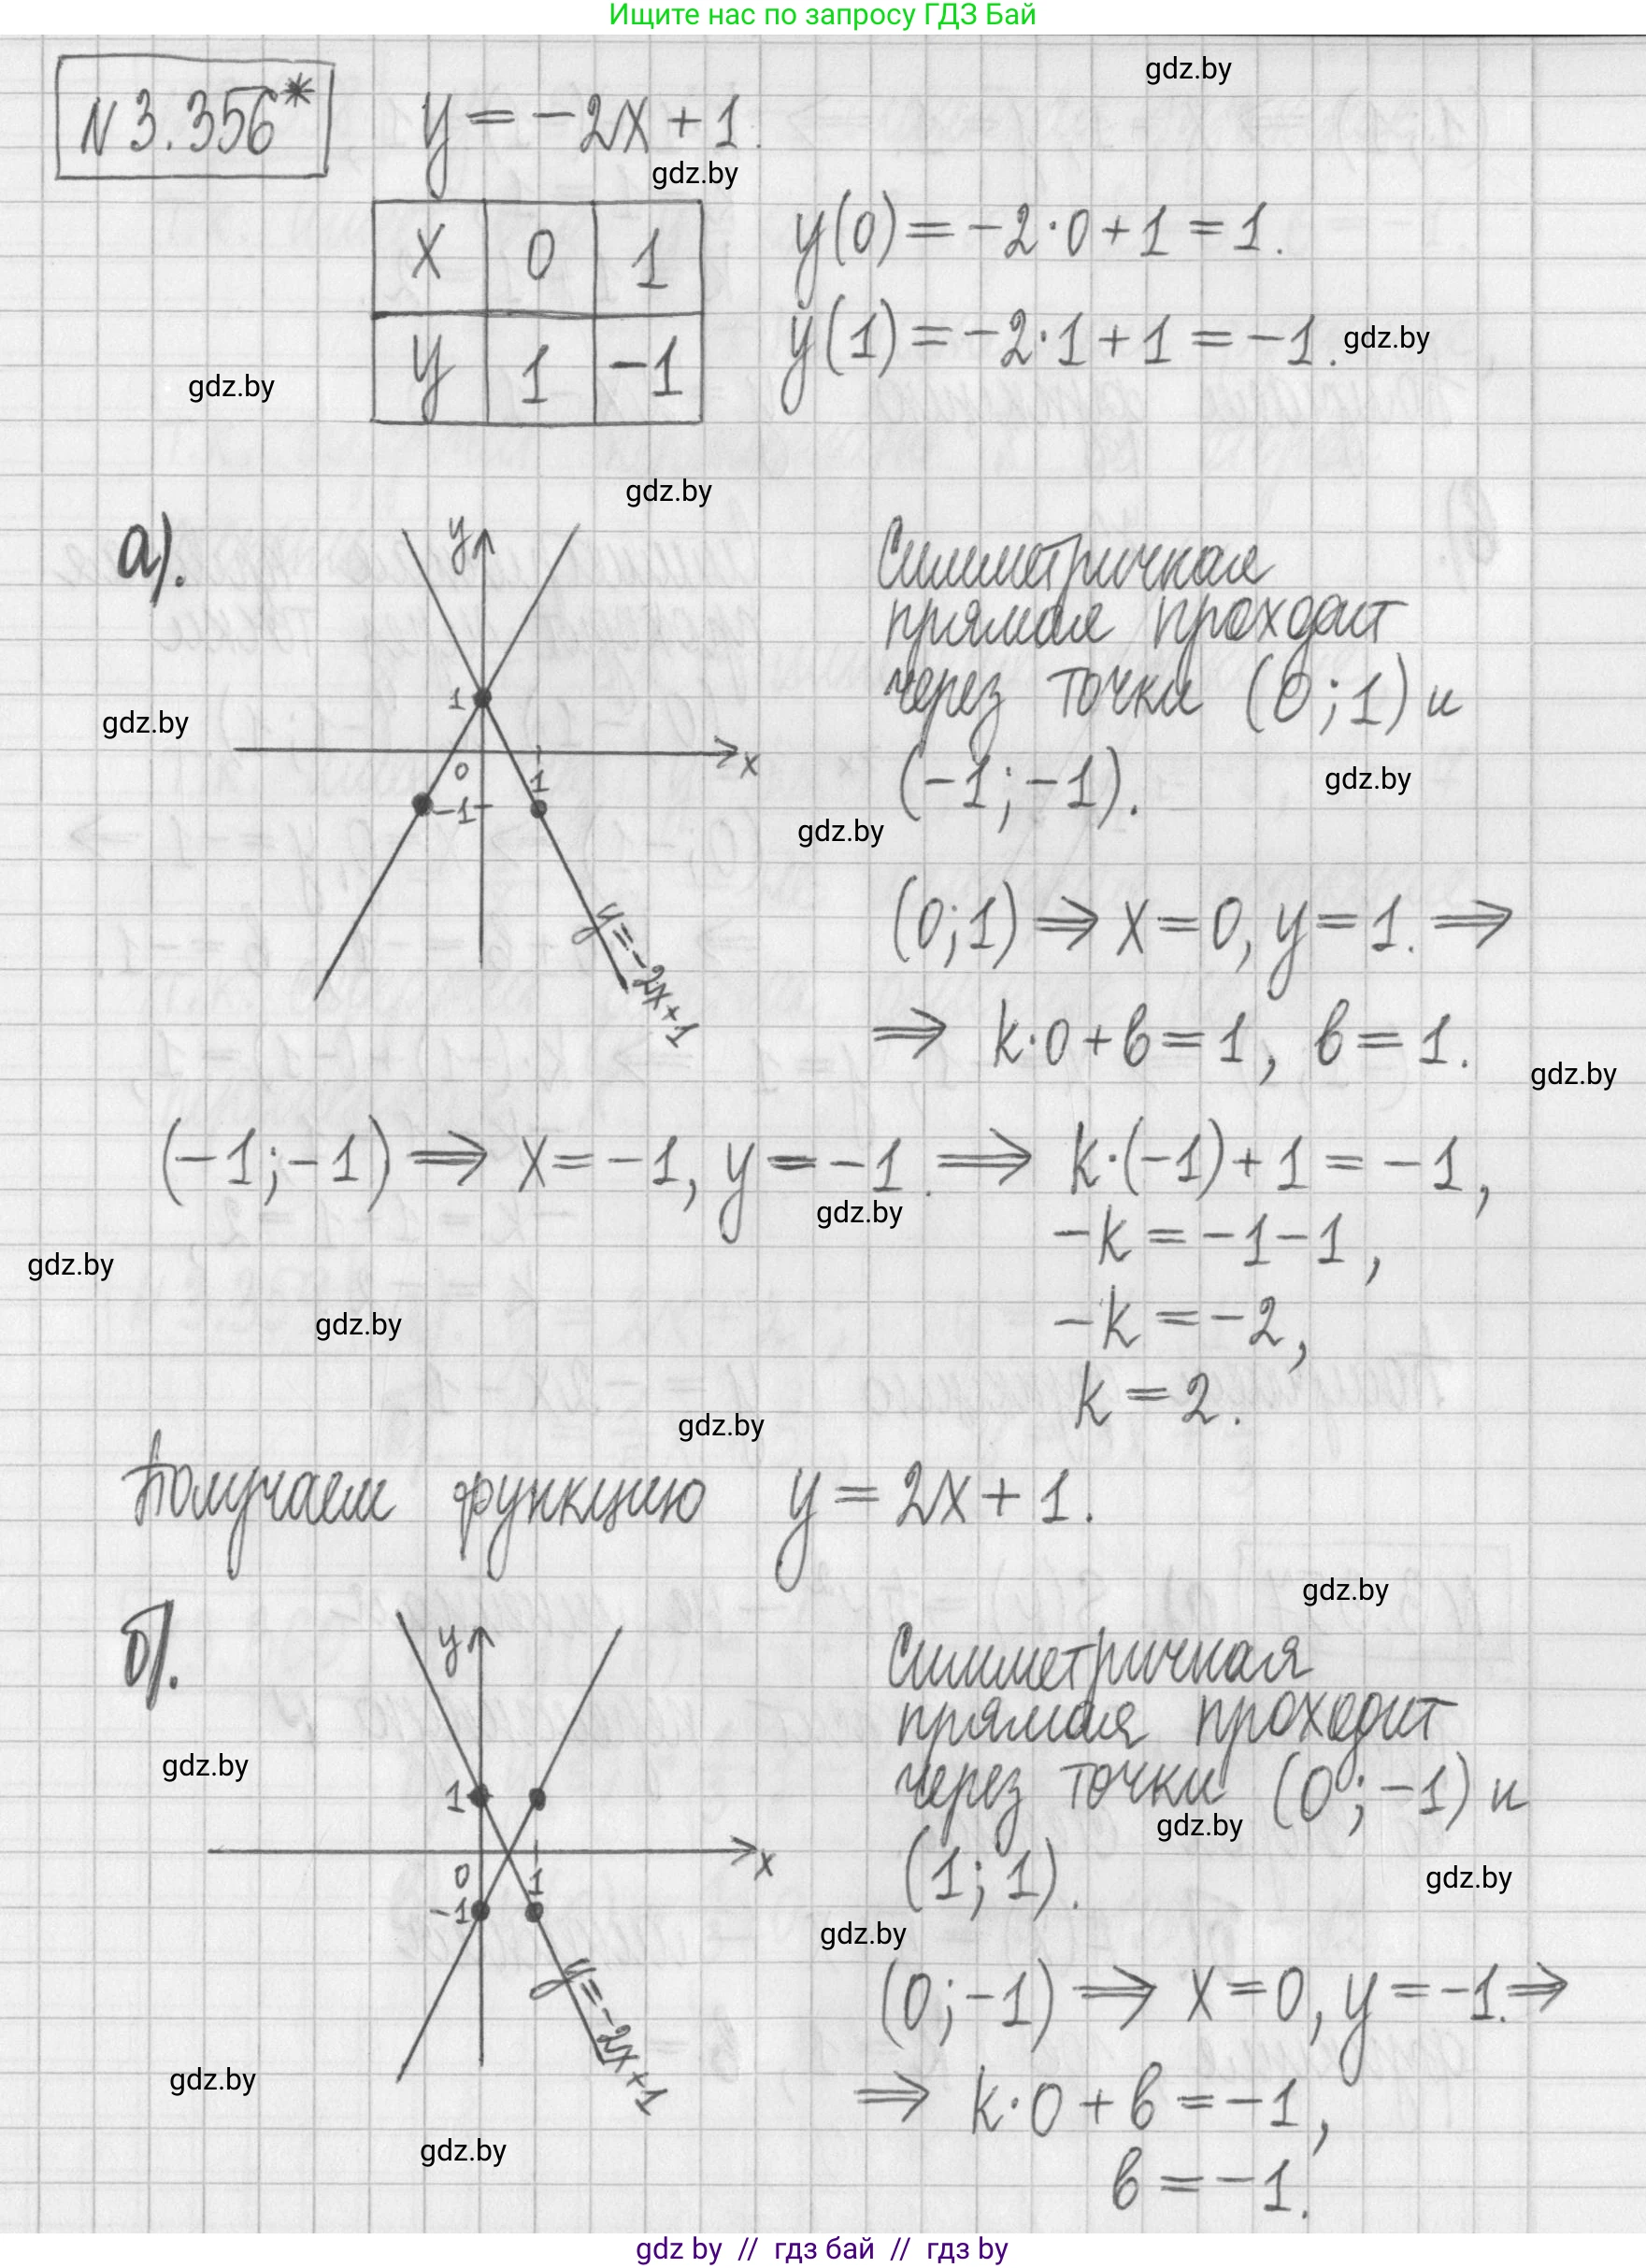 Ищите нас по запросу ГДЗ Бай
gdz.by
N 3.356*
y = -2x + 1.
gdz.by
x 0 1
y 1 -1
y(0) = -2·0 + 1 = 1.
y(1) = -2·1 + 1 = -1.
gdz.by
gdz.by
gdz.by
а).
y
1
0
1
x
-1
y=-2x+1
Симметричная
прямая проходит
через точки (0;1) и
(-1;-1).
gdz.by
gdz.by
gdz.by
(0;1) ⇒ x=0, y=1. ⇒
⇒ k·0+в=1, в=1.
gdz.by
(-1;-1) ⇒ x=-1, y=-1. ⇒ k·(-1)+1=-1,
gdz.by
-k=-1-1,
gdz.by
gdz.by
-k=-2,
k=2.
gdz.by
Получаем функцию y=2x+1.
gdz.by
б).
y
1
0
1
x
-1
y=-2x+1
Симметричная
прямая проходит
через точки (0;-1) и
(1;1).
gdz.by
gdz.by
gdz.by
gdz.by
(0;-1) ⇒ x=0, y=-1. ⇒
⇒ k·0+в=-1,
в=-1.
gdz.by
gdz.by
gdz by // гдз бай // гдз by